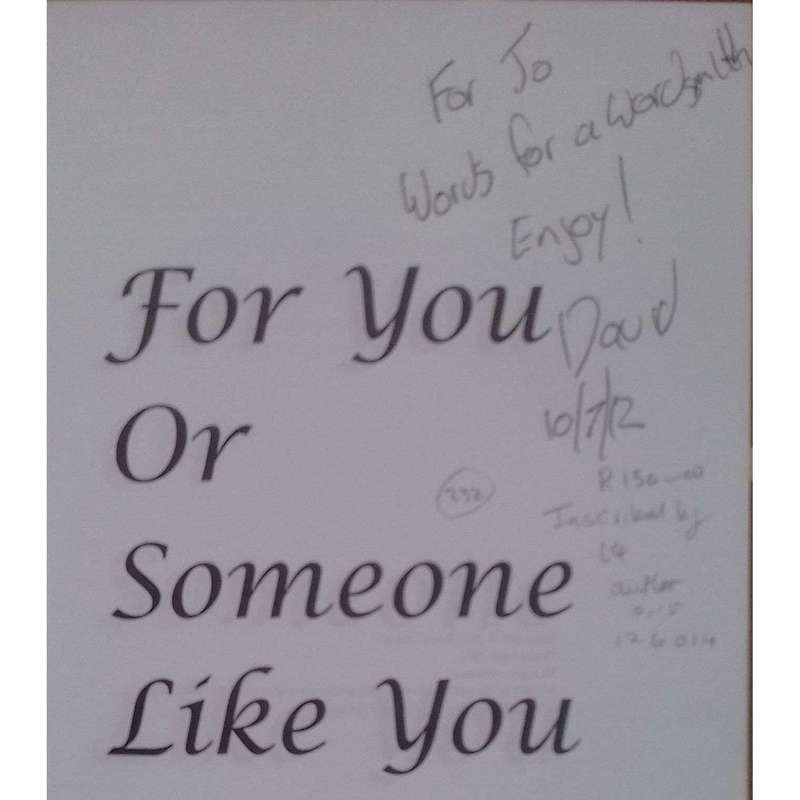 For Jo
Words for a wordsmith
Enjoy!
David
10/7/12
For You
Or
Someone
Like You
232
R 150-00
Inscribed by
the
author